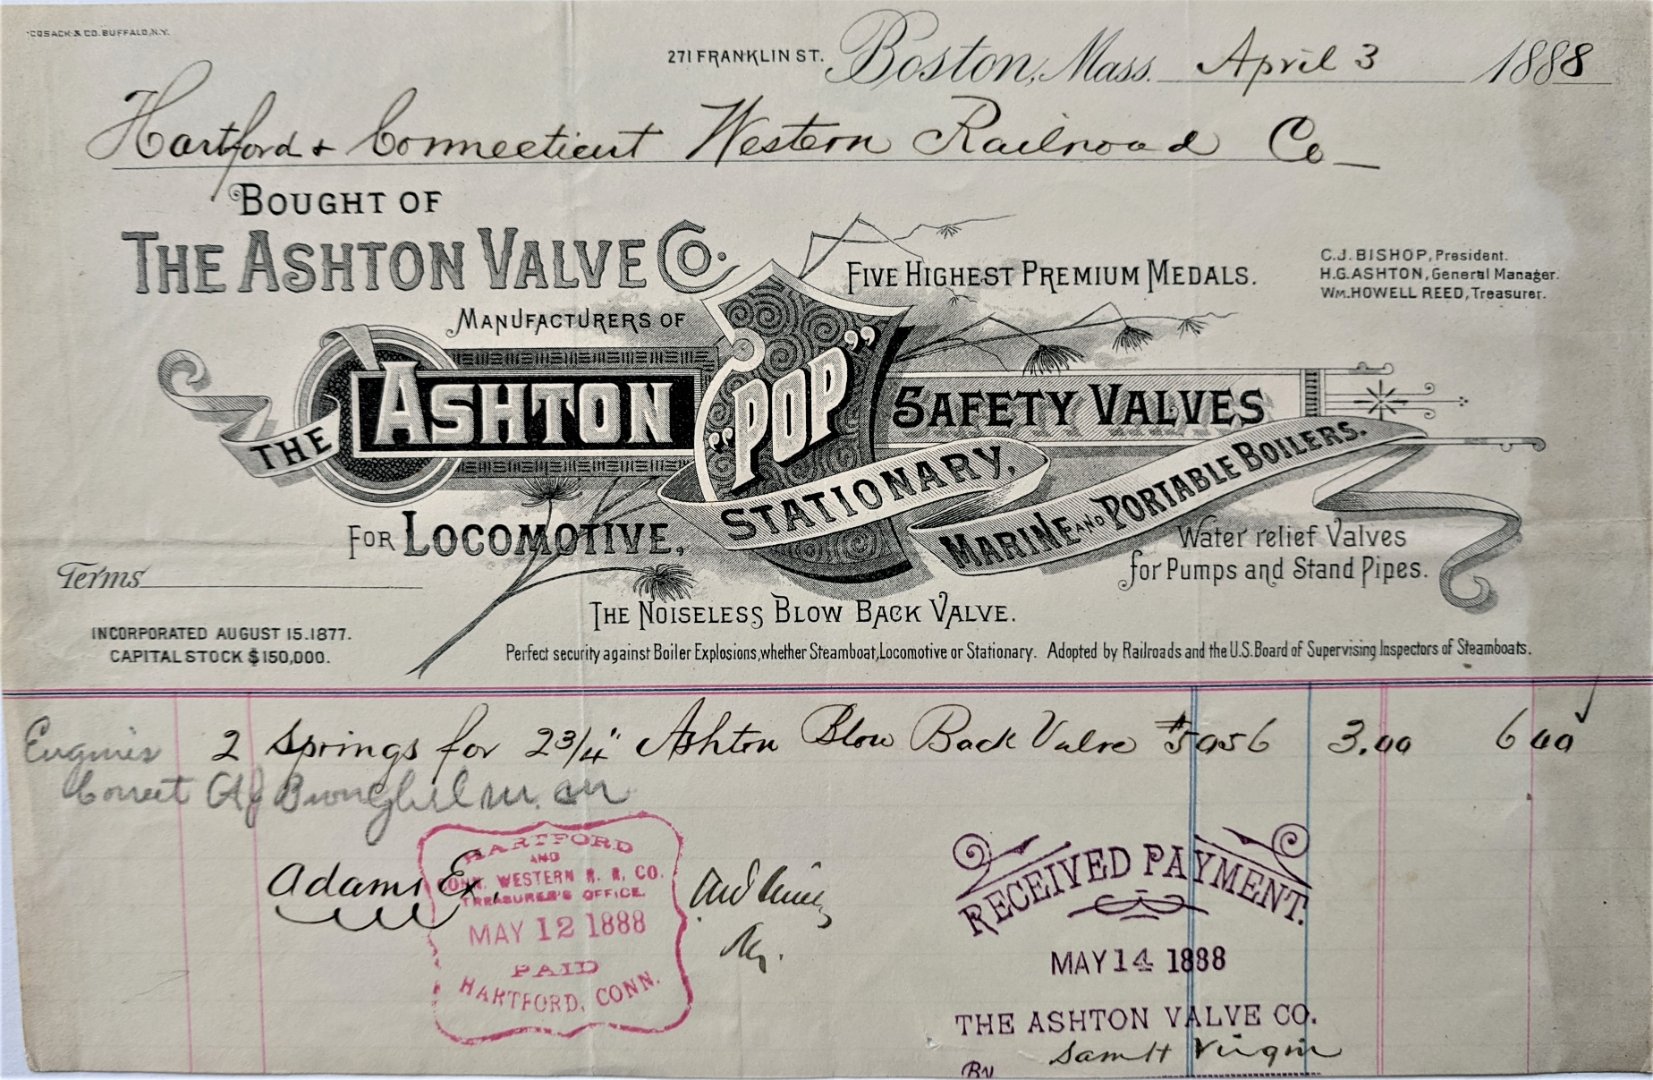 COSACK & CO. BUFFALO, N.Y.
271 FRANKLIN ST. Boston, Mass. April 3 1888
Hartford & Connecticut Western Railroad Co
BOUGHT OF
THE ASHTON VALVE CO.
FIVE HIGHEST PREMIUM MEDALS.
C.J. BISHOP, President.
H.G. ASHTON, General Manager.
WM. HOWELL REED, Treasurer.
MANUFACTURERS OF
THE ASHTON "POP" SAFETY VALVES
FOR LOCOMOTIVE, STATIONARY, MARINE AND PORTABLE BOILERS.
Water relief Valves
for Pumps and Stand Pipes.
Terms
THE NOISELESS BLOW BACK VALVE.
INCORPORATED AUGUST 15. 1877.
CAPITAL STOCK $150,000.
Perfect security against Boiler Explosions, whether Steamboat, Locomotive or Stationary. Adopted by Railroads and the U.S. Board of Supervising Inspectors of Steamboats.
Engines 2 Springs for 2 3/4" Ashton Blow Back Valve #5956 3.00 6 00
Correct
Adams Ex.
HARTFORD
AND
CONN. WESTERN R. R. CO.
TREASURER'S OFFICE.
MAY 12 1888
PAID
HARTFORD, CONN.
RECEIVED PAYMENT.
MAY 14 1888
THE ASHTON VALVE CO.
BY